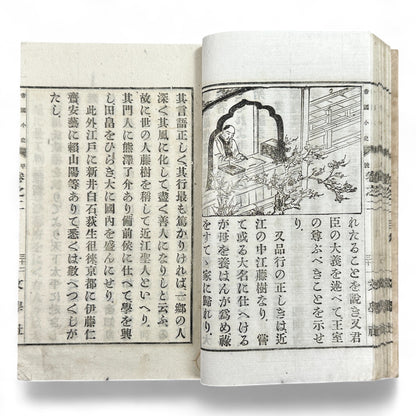 帝國小史
卷之二
れたることを説き又君
臣の大義を述べて王室
の尊ぶべきことを示せ
り。
又品行の正しきは近
江の中江藤樹なり。嘗
て或る大名に仕へける
が母を養はんが爲め祿
をすてゝ家に歸れり。
其言語正しく其行最も篤かりければ一鄕の人
深く其風に化して盡く善人になりしと云ふ。
故に世の人藤樹を稱して近江聖人といへり。
其門人に熊澤了介あり備前侯に仕へて學を興
し田畠をひらき大に國內を盛んにせり。
此外江戶に新井白石荻生徂徠京都に伊藤仁
齋安藝に賴山陽等ありて悉くは數へつくしが
たし。
帝國小史
卷之二
文學社